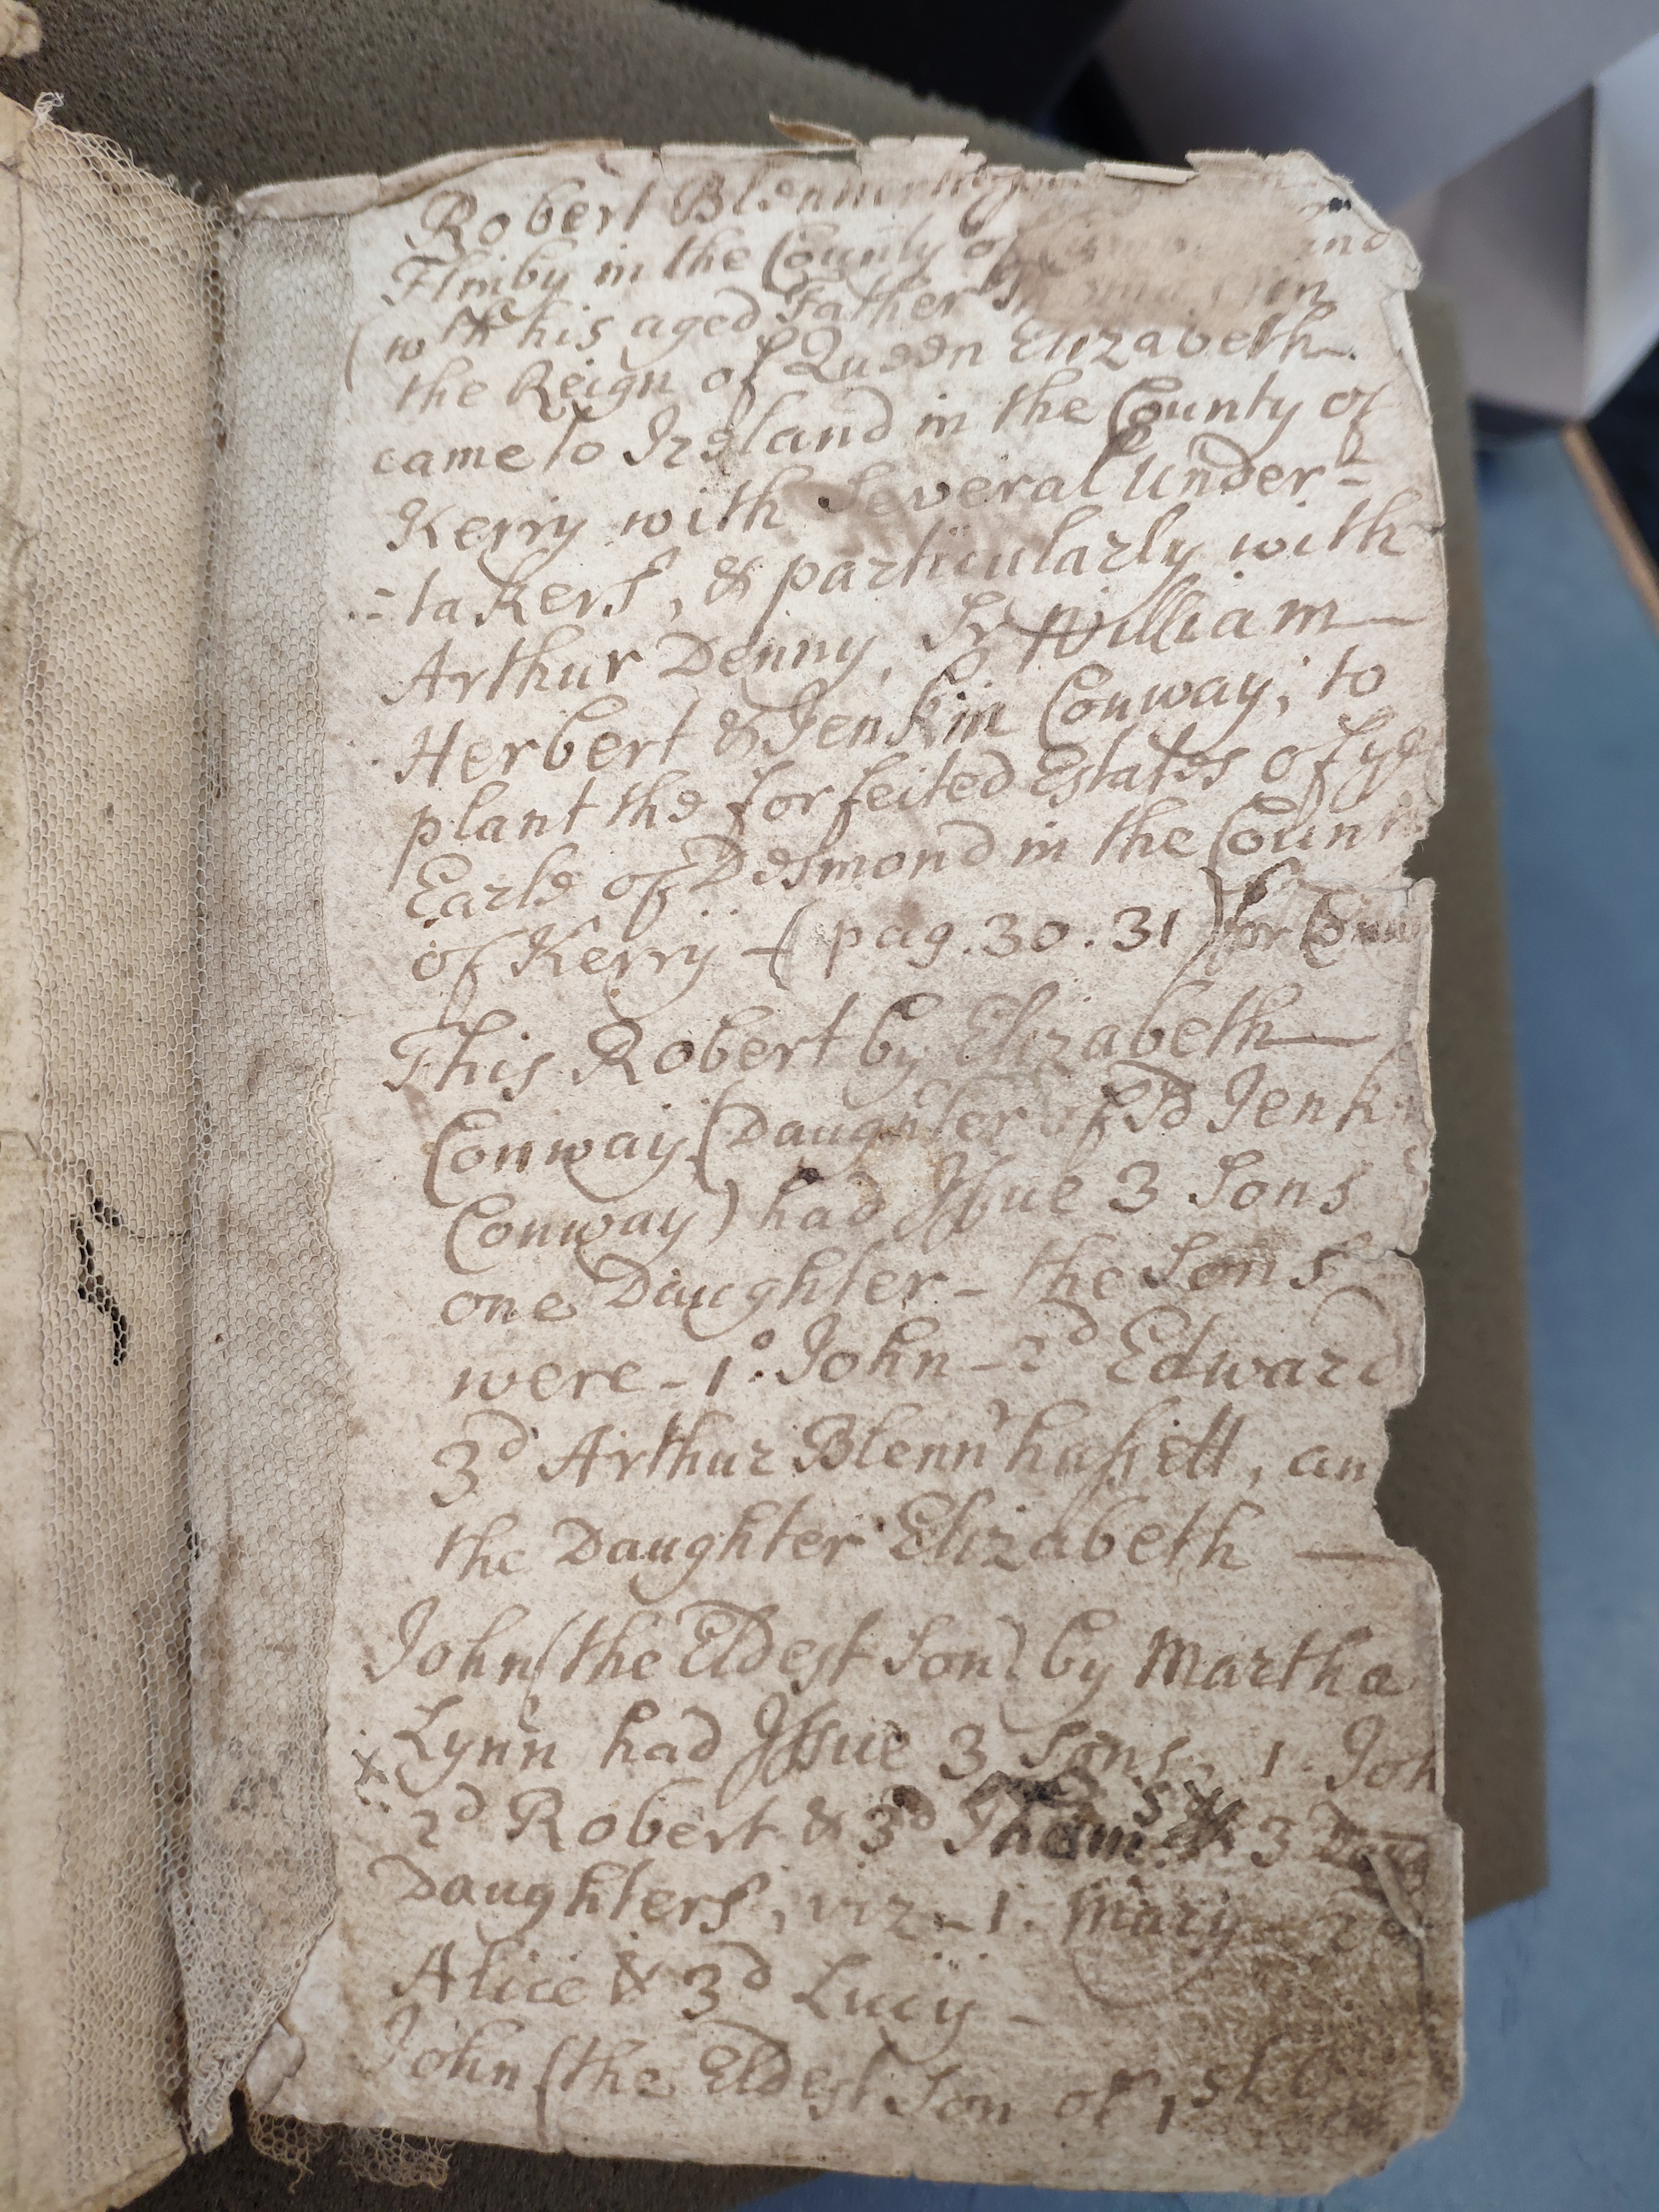 Robert
Flimby in the County of
(wth his aged Father
the Reign of Queen Elizabeth
came to Ireland in the County of
Kerry with Several Under-
=takers, & particularly with
Arthur Denny, Sr William
Herbert & Jenkin Conway; to
plant the forfeited Estates of ye
Earle of Desmond in the
of Kerry - (pag. 30. 31) for
This Robert by Elizabeth
Conway (Daughter of sd
Conway) had Issue 3 Sons
one Daughter - the Sons
were - 1o. John - 2d Edward
3d Arthur Blennrhassett,
the Daughter Elizabeth —
John (the Eldest Son) by Martha
Lynn had Issue 3 Sons, 1.
x 2d Robert & 3d Thomas & 3
Daughters, viz - 1. Mary - 2d
Alice & 3d Lucy -
John (the Eldest Son of